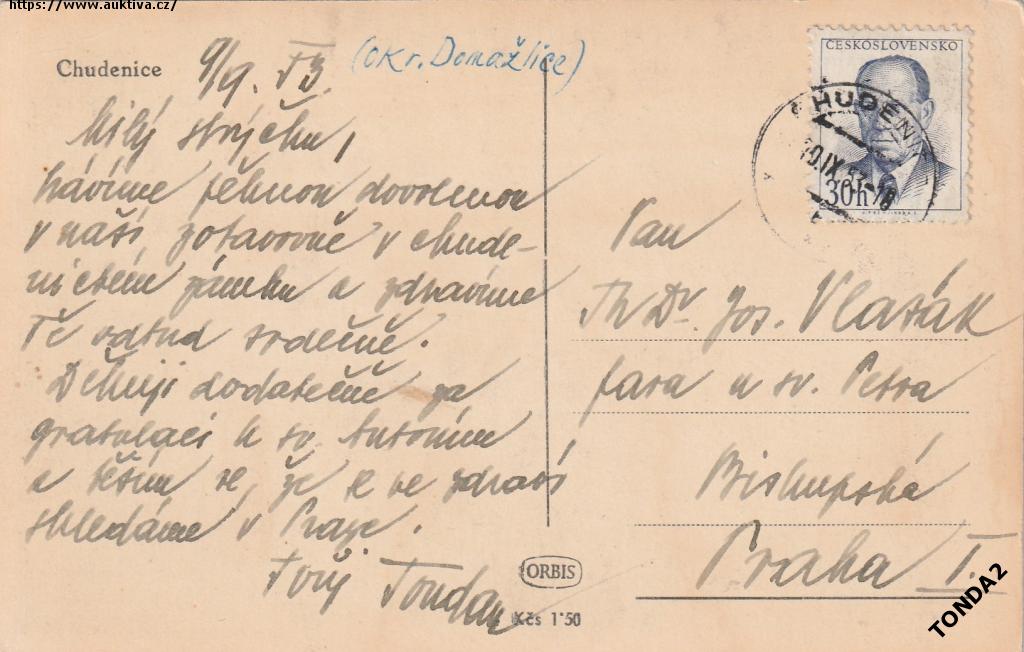 https://www.auktiva.cz/
Chudenice
9/19. 53. (okr. Domažlice)
Milý strýčku,
trávíme pěknou dovolenou
v naší zotavovně v chude-
nickém zámku a zdravíme
Tě odtud srdečně.
Děkuji dodatečně za
gratulaci k sv. Antonínu
a těším se, že se ve zdraví
shledáme v Praze.
Tvůj Tonda
ORBIS
Kčs 1·50
ČESKOSLOVENSKO
30h
CHUDENI
10.IX.53-18
Pan
ThDr. Jos. Vlasák
fara u sv. Petra
Biskupská
Praha I.
TONDA2